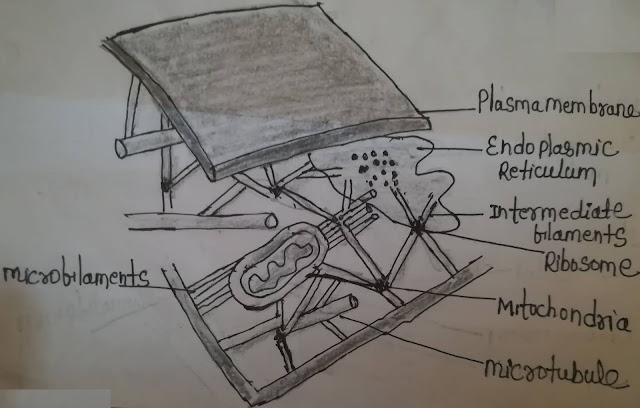 Plasmamembrane
Endoplasmic
Reticulum
Intermediate
filaments
Ribosome
microfilaments
Mitochondria
microtubule